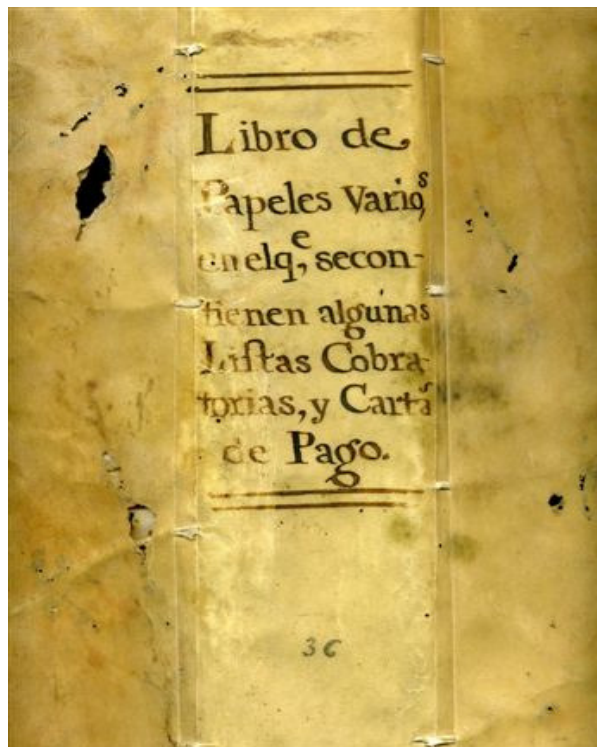 Libro de
Papeles Varios,
en el q,e secon-
tienen algunas
Liſtas Cobra-
torias, y Cartas
de Pago.
36